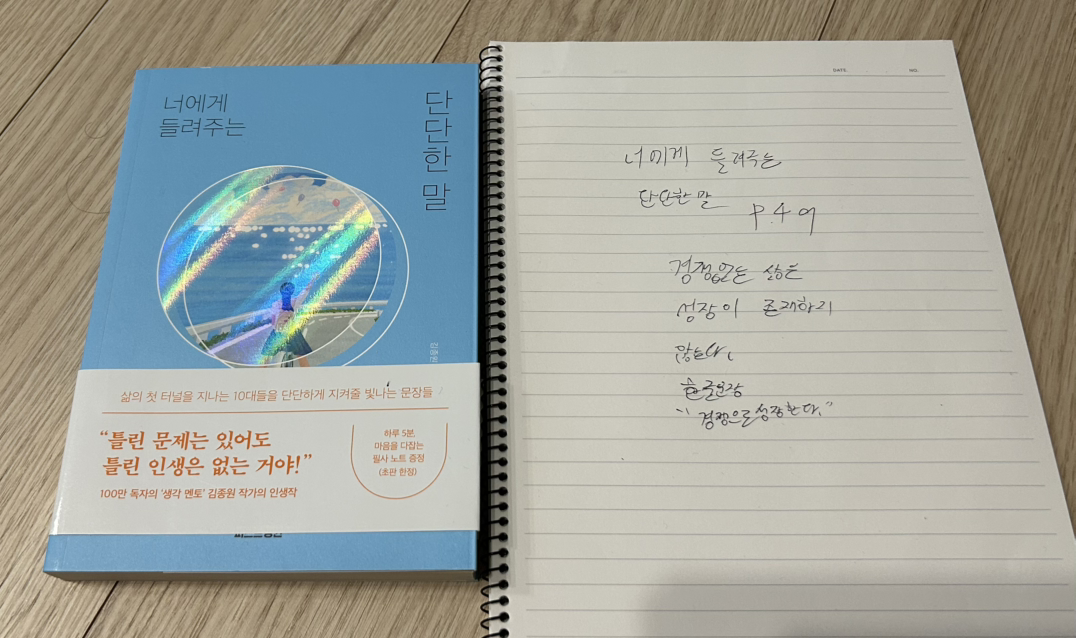 너에게
들려주는
단단한 말
김종원
삶의 첫 터널을 지나는 10대들을 단단하게 지켜줄 빛나는 문장들
“틀린 문제는 있어도
틀린 인생은 없는 거야!”
100만 독자의 '생각 멘토' 김종원 작가의 인생작
하루 5분,
마음을 다잡는
필사 노트 증정
(초판 한정)
DATE.
NO.
너에게 들려주는
단단한 말
P.49
경쟁없는 삶은
성장이 존재하지
않는다.
한글문장
“경쟁으로성장한다.”